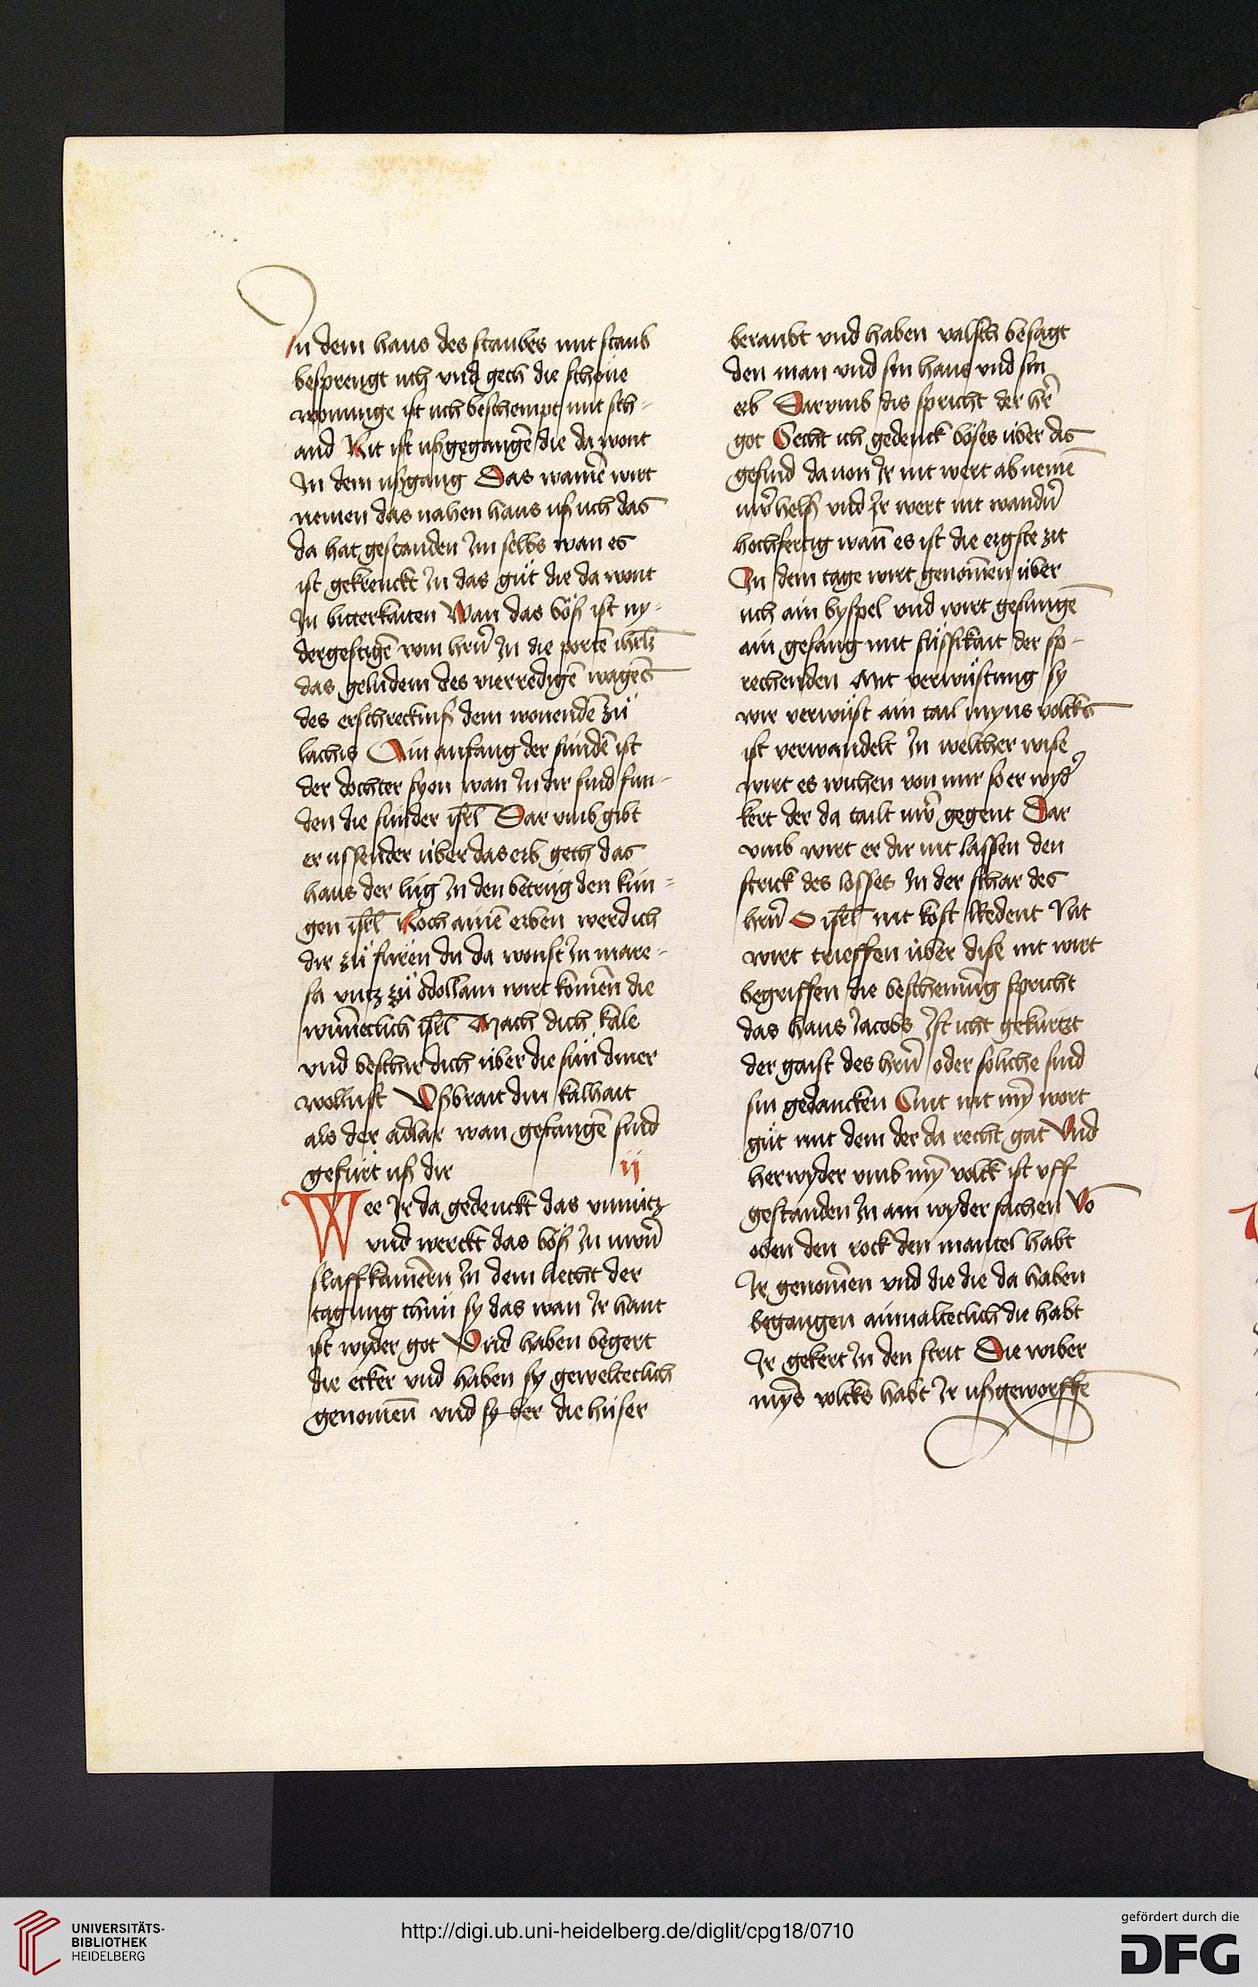 In dem haus des staubes mit staub
besprengt uch vnd gech die schöne
wonunge ist uch beschempt mit sch-
and Nit ist vßgegangē die da wont
In dem vßgang Das wainē wirt
nemen das nahen haus vß uch das
da hat gestanden Im selbs wan es
ist gekrenckt In das gut die da wont
In bitterkaiten Wan das böß ist ny-
dergestigē vom hern̄ In die porte ihrlm̄
das geludem des vierredigē wagens
des erschreckniß dem wonende zů
lachis Ain anfang der sunden ist
der dochter syon wan In dir sind fun-
den die sunder isrl̄ Dar vmb gibt
er ussender über das erb geth das
haus der lug In den betrug den kün-
gen isrl̄ Noch ainē erben werd ich
dir zů fůren du da wonst In mare-
sa vntz zů odollam wirt komen die
wunneclich isrl̄ Mach dich kale
vnd beschir dich über die sün diner
wollust Vßbrait din kalhait
als der adlar wan gefangē sind
gefurt vß dir ij
Wee Ir da gedenckt das vnnutz
vnd werckt das böß In uwrn̄
slaffkamern In dem liecht der
tagung thun sy das wan Ir hant
ist wyder got Vnd haben begert
die ecker vnd haben sy geweltclich
genomen vnd sy der die huser
beraubt vnd haben valsch besagt
den man vnd sin haus vnd sin
erb Darvmb dis spricht der h̄r
got Secht ich gedenck böses über dis
gesind da von Ir nit wert ab nemē
uwr̄ helß vnd Ir wert nit wandn̄
hochfertig wan̄ es ist die ergste zit
In dem tage wirt genomen über
uch ain byspel vnd wirt gesungē
ain gesang mit sussikait der sp-
rechenden Mit verwüstung sy
wir verwüst ain tail myns volcks
ist verwandelt In welcher wise
wirt es wichen von mir so er wyd̄
kert der da tailt uwr̄ gegent Dar
vmb wirt er dir nit lassen den
strick des losses In der schar des
hern̄ O isrl̄ nit kost Redent Nit
wirt trieffen über dise nit wirt
begriffen die beschemung spricht
das haus Iacobs Ist icht gekürtzt
der gaist des hern̄ oder soliche sind
sin gedancken Sint nit my̅ wort
gut mit dem der da recht gat Vnd
herwyder vmb my̅ volck ist vff
gestanden In ain wyder sachen Vo
oben den rock den mantel habt
Ir genomen vnd die die da haben
begangen ainualteclich die habt
Ir gekert In den strit Die wiber
myn̄s volcks habt Ir vßgeworffē
UNIVERSITÄTS-
BIBLIOTHEK
HEIDELBERG
http://digi.ub.uni-heidelberg.de/diglit/cpg18/0710
gefördert durch die
DFG